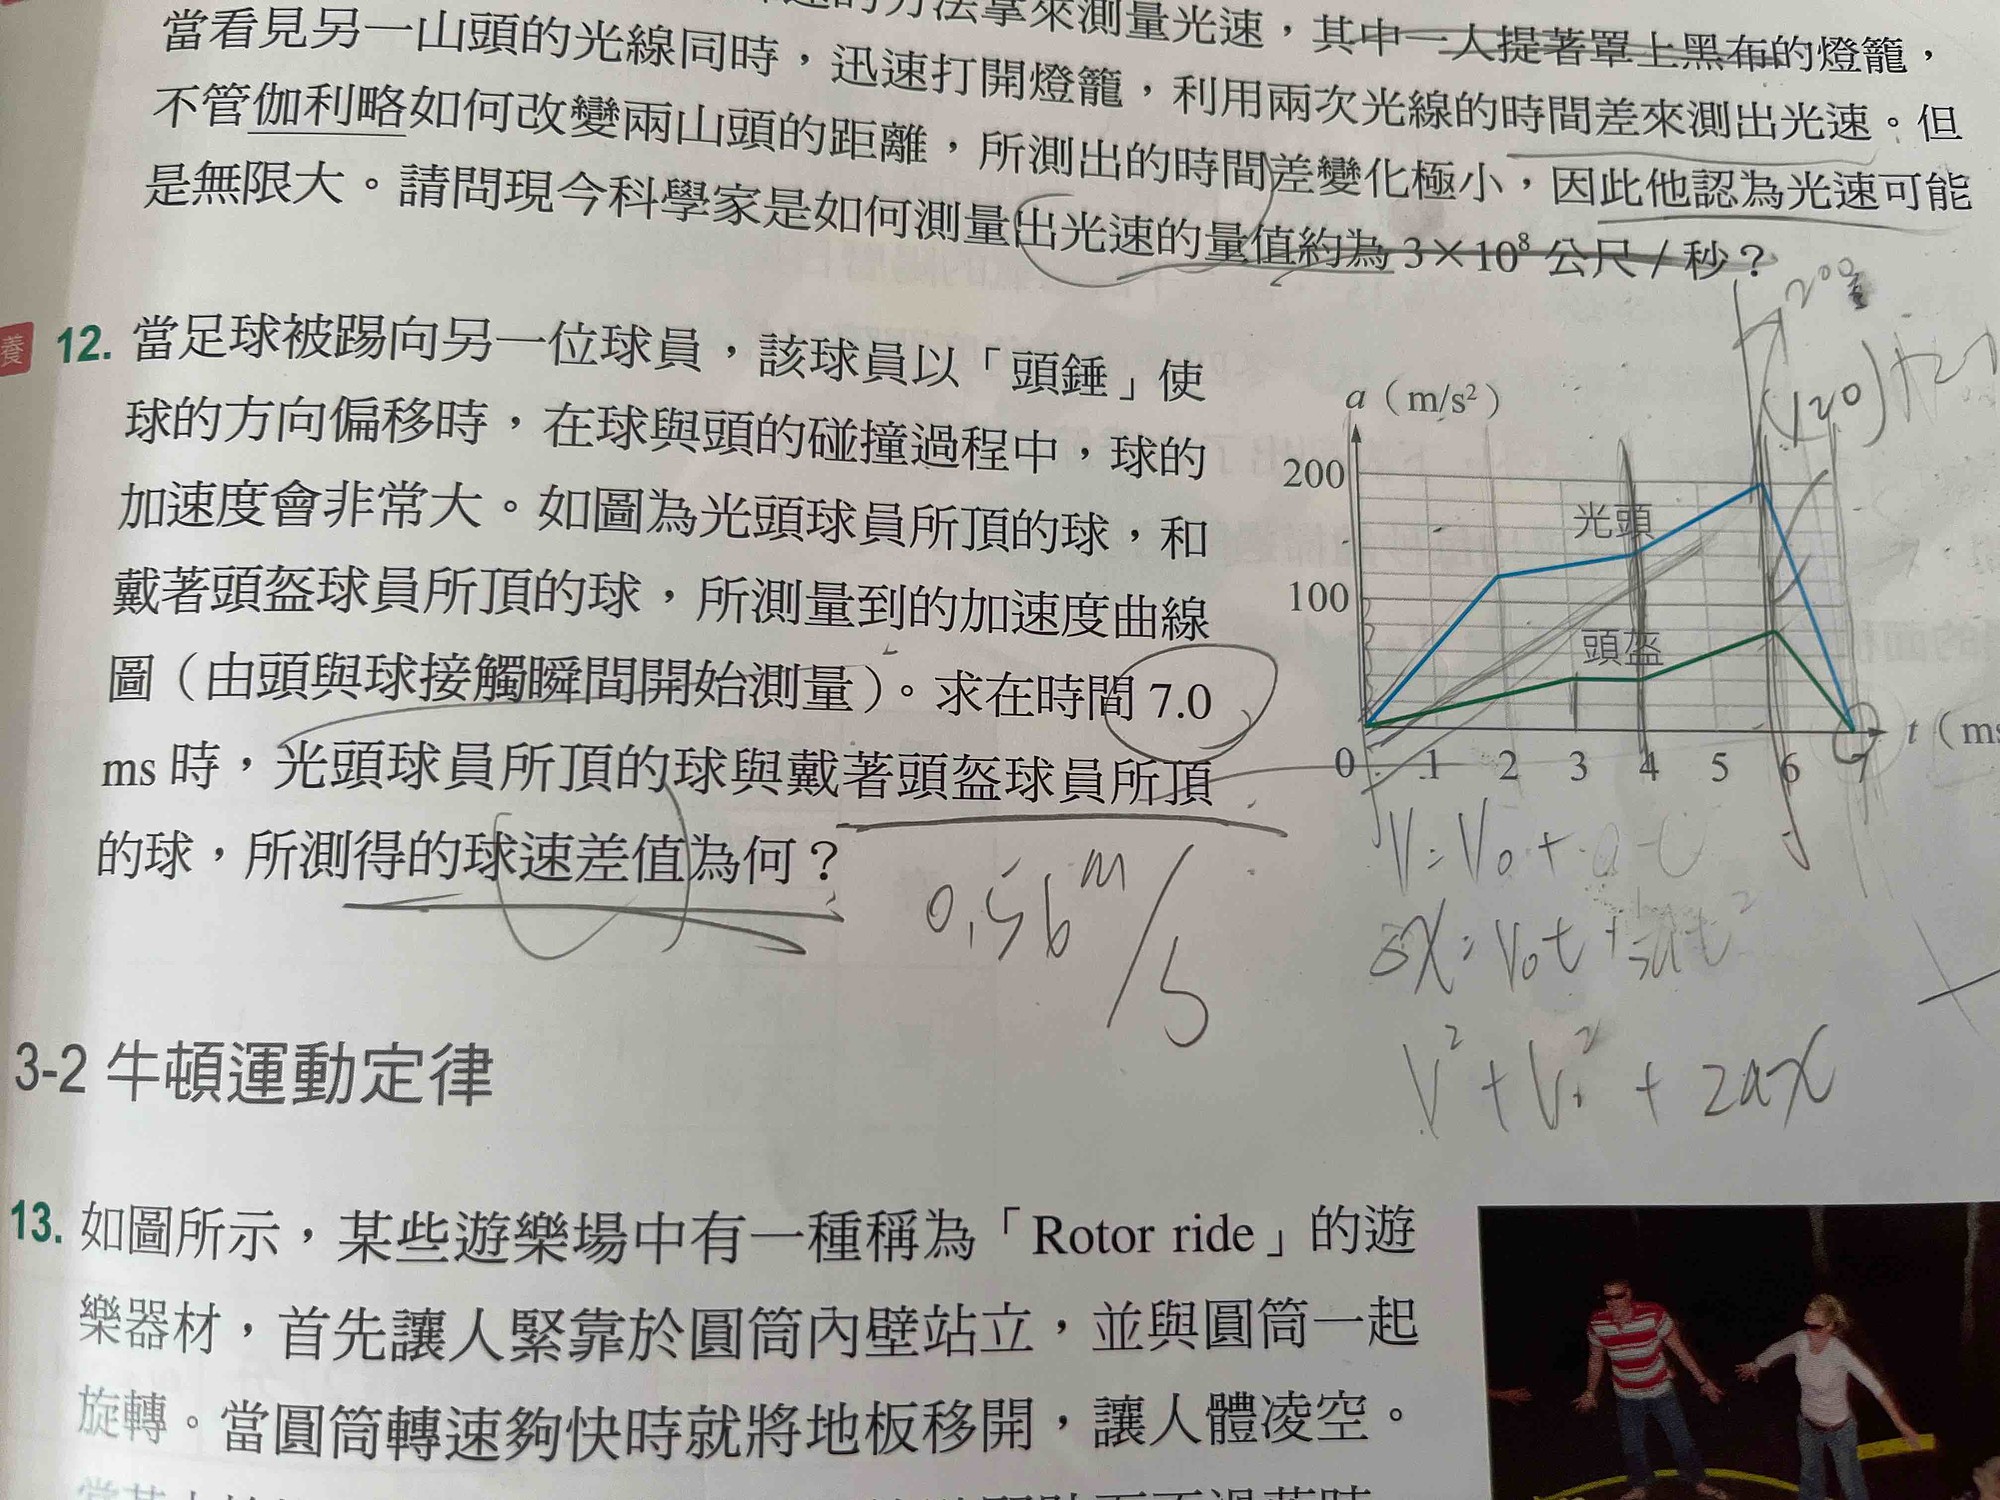 的方法拿來測量光速，其中一人提著罩上黑布的燈籠，
當看見另一山頭的光線同時，迅速打開燈籠，利用兩次光線的時間差來測出光速。但
不管伽利略如何改變兩山頭的距離，所測出的時間差變化極小，因此他認為光速可能
是無限大。請問現今科學家是如何測量出光速的量值約為 3×10⁸ 公尺／秒？
養 12. 當足球被踢向另一位球員，該球員以「頭錘」使
球的方向偏移時，在球與頭的碰撞過程中，球的
加速度會非常大。如圖為光頭球員所頂的球，和
戴著頭盔球員所頂的球，所測量到的加速度曲線
圖（由頭與球接觸瞬間開始測量）。求在時間 7.0
ms 時，光頭球員所頂的球與戴著頭盔球員所頂
的球，所測得的球速差值為何？
0.56 m/s
200
(120)
a（m/s²）
200
光頭
100
頭盔
0 1 2 3 4 5 6 7 t（ms
V=V₀+at
ΔX=V₀t+½at²
V²+V₀²+2ax
3-2 牛頓運動定律
13. 如圖所示，某些遊樂場中有一種稱為「Rotor ride」的遊
樂器材，首先讓人緊靠於圓筒內壁站立，並與圓筒一起
旋轉。當圓筒轉速夠快時就將地板移開，讓人體凌空。